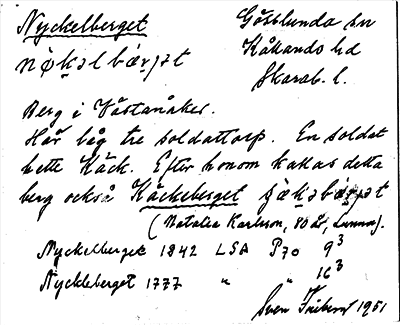 Nyckelberget Gösslunda sn
Kåkinds hd
Skarab. l.
Berg i Västanåker.
Här låg tre soldattorp. En soldat
hette Käck. Efter honom kallas detta
berg också Käckeberget
(Natalia Karlsson, 80 år, Lunna).
Nyckelberget 1842 LSA P70 9³
Nyckleberget 1777 " " 16³
Sven 1951